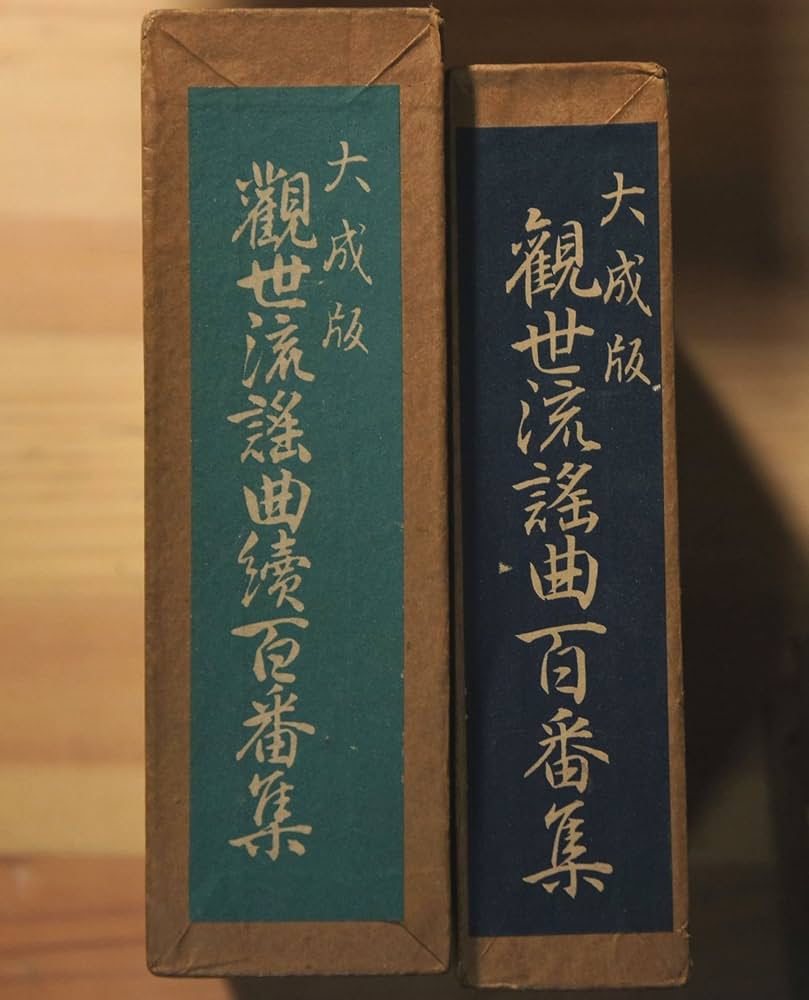 大成版
觀世流謠曲百番集
大成版
觀世流謠曲續百番集